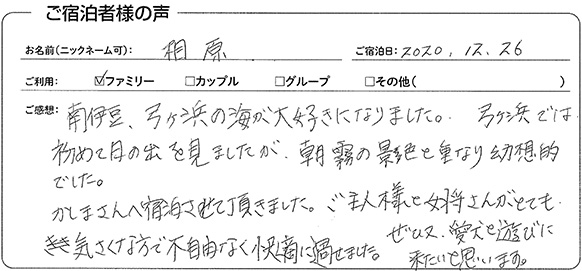 ご宿泊者様の声
お名前(ニックネーム可): 相原 ご宿泊日: 2020, 12, 26
ご利用: ☑ファミリー □カップル □グループ □その他( )
ご感想: 南伊豆、弓ヶ浜の海が大好きになりました。 弓ヶ浜では
初めて日の出を見ましたが、朝霧の景色と重なり幻想的
でした。
かしまさんへ宿泊させて頂きました。ご主人様と女将さんがとても
気さくな方で不自由なく快適に過せました。 ぜひ又、愛犬と遊びに
来たいと思います。